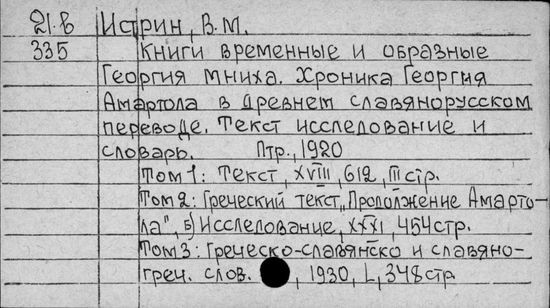 21.в Истрин, В.М.
335 Книги временные и образные
Георгия мниха. Хроника Георгия
Амартола в древнем славянорусском
переводе. Текст исследование и
словарь. Птр., 1920
Том 1: Текст, XVIII, 612, III стр.
Том 2: Греческий текст „Продолжение Амарто-
ла", б) Исследование, XXXI, 454 стр.
Том 3: Греческо-славянско и славяно-
греч. слов. , 1930, L, 348 стр.